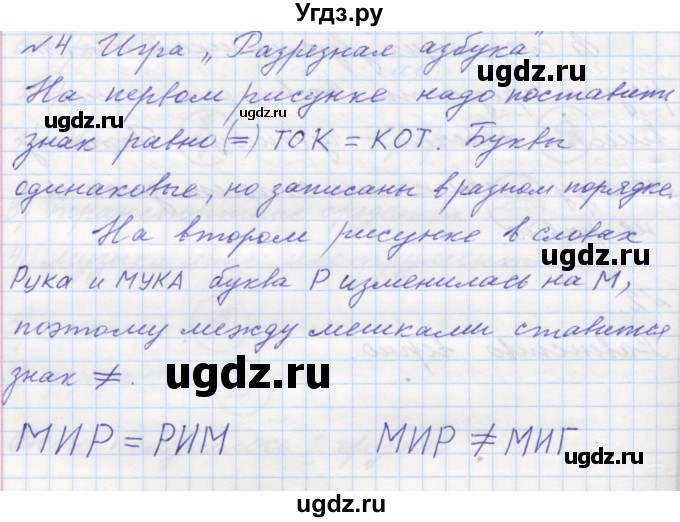 Угдз.ру
№4 Игра „Разрезная азбука".
На первом рисунке надо поставить
знак равно (=) ТОК = КОТ. Буквы
одинаковые, но записаны в разном порядке.
На втором рисунке в словах
РУКА и МУКА буква Р изменилась на М,
поэтому между мешками ставится
знак ≠.
МИР = РИМ МИР ≠ МИГ
ugdz.ru
ugdz.ru
ugdz.ru
ugdz.ru
ugdz.ru
ugdz.ru
ugdz.ru